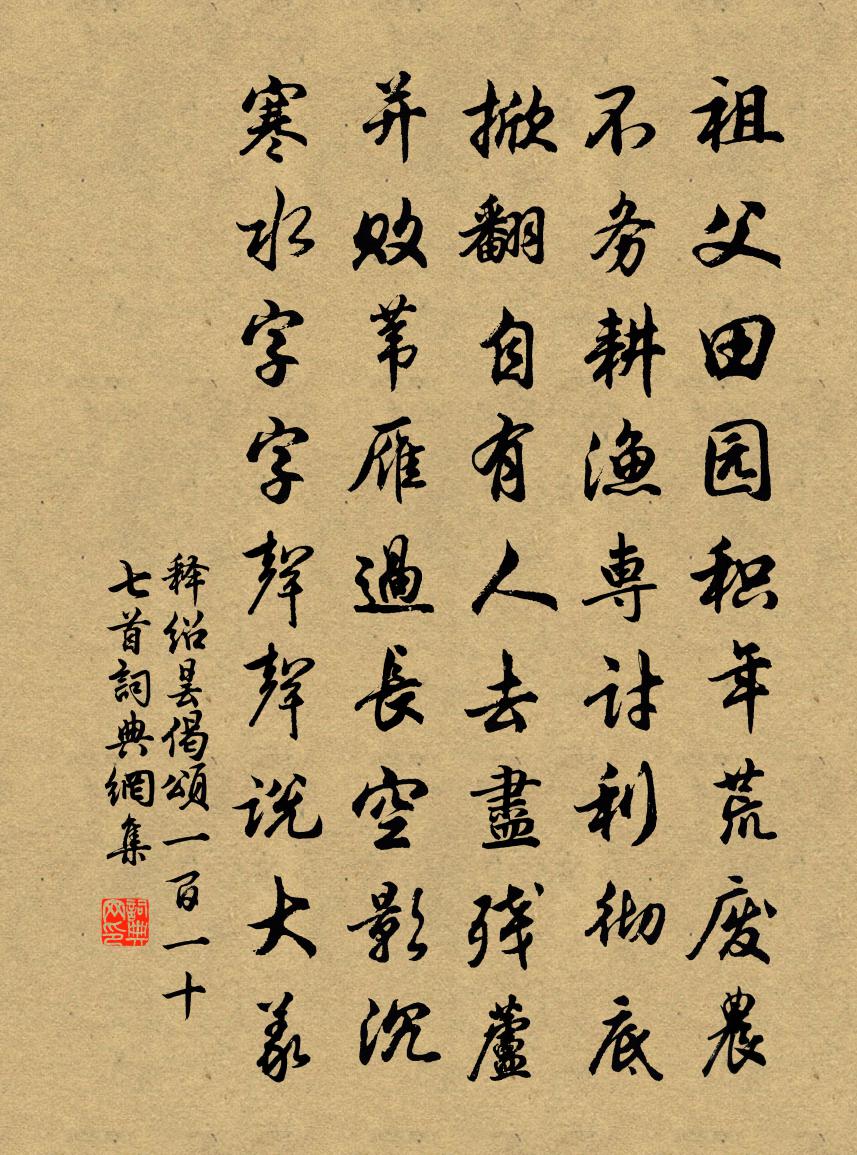 祖父田园积年荒废農
不务耕渔専討利彻底
掀翻自有人去盡残蘆
并败苇雁過長空影沉
寒水字字聲聲说大义
释绍昙偈頌一百一十
七首詞典網集
詞典网印